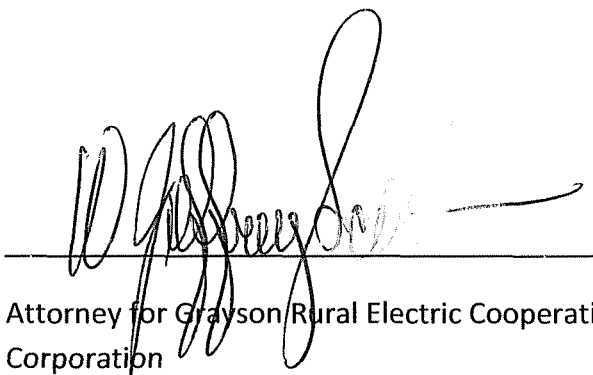 W. Jeffrey
Attorney for Grayson Rural Electric Cooperati
Corporation